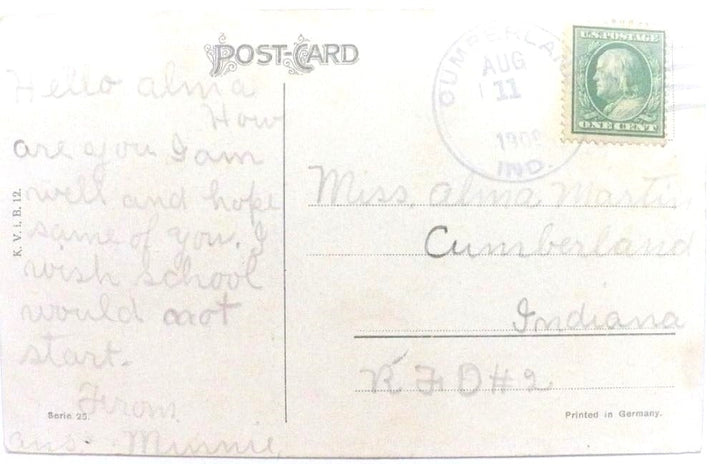 POST-CARD
Hello Alma
How
are you I am
well and hope
same of you. I
wish school
would not
start.
From
ans. Minnie
K. V. i. B. 12.
Serie 25.
CUMBERLAN
AUG
11
1909
IND.
U.S. POSTAGE
ONE CENT
Miss, Alma Martin,
Cumberland
Indiana
R F D # 2
Printed in Germany.